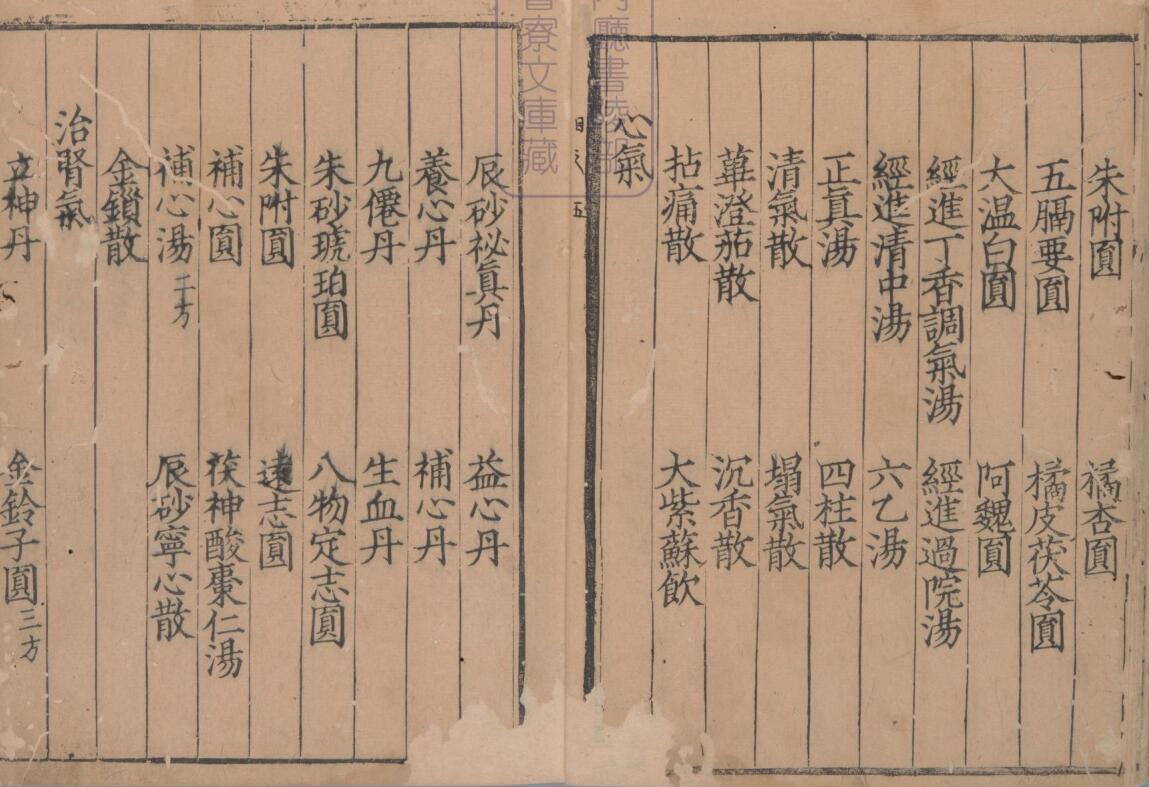 朱附圎 橘杏圎
五膈要圎 橘皮茯苓圎
大温白圎 阿魏圎
經進丁香調氣湯 經進過院湯
經進清中湯 六乙湯
正真湯 四柱散
清氣散 塌氣散
蓽澄茄散 沉香散
拈痛散 大紫蘇飲
心氣
辰砂祕真丹 益心丹
養心丹 補心丹
九僊丹 生血丹
朱砂琥珀圎 八物定志圎
朱附圎 遠志圎
補心圎 茯神酸棗仁湯
補心湯二方 辰砂寧心散
金鎖散
治腎氣
立神丹 金鈴子圎三方
廳書陵部
寮文庫藏